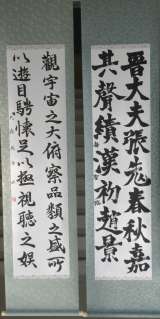 晉大夫張老春秋嘉
其聲績漢初趙景
觀宇宙之大俯察品類之盛所
以遊目騁懷足以極視聽之娛